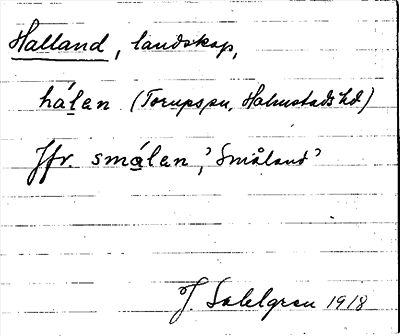 Halland, landskap,
hálen (Torupspn, Halmstads hd)
Jfr. smálen, 'Småland'
J. Sahlgren 1918